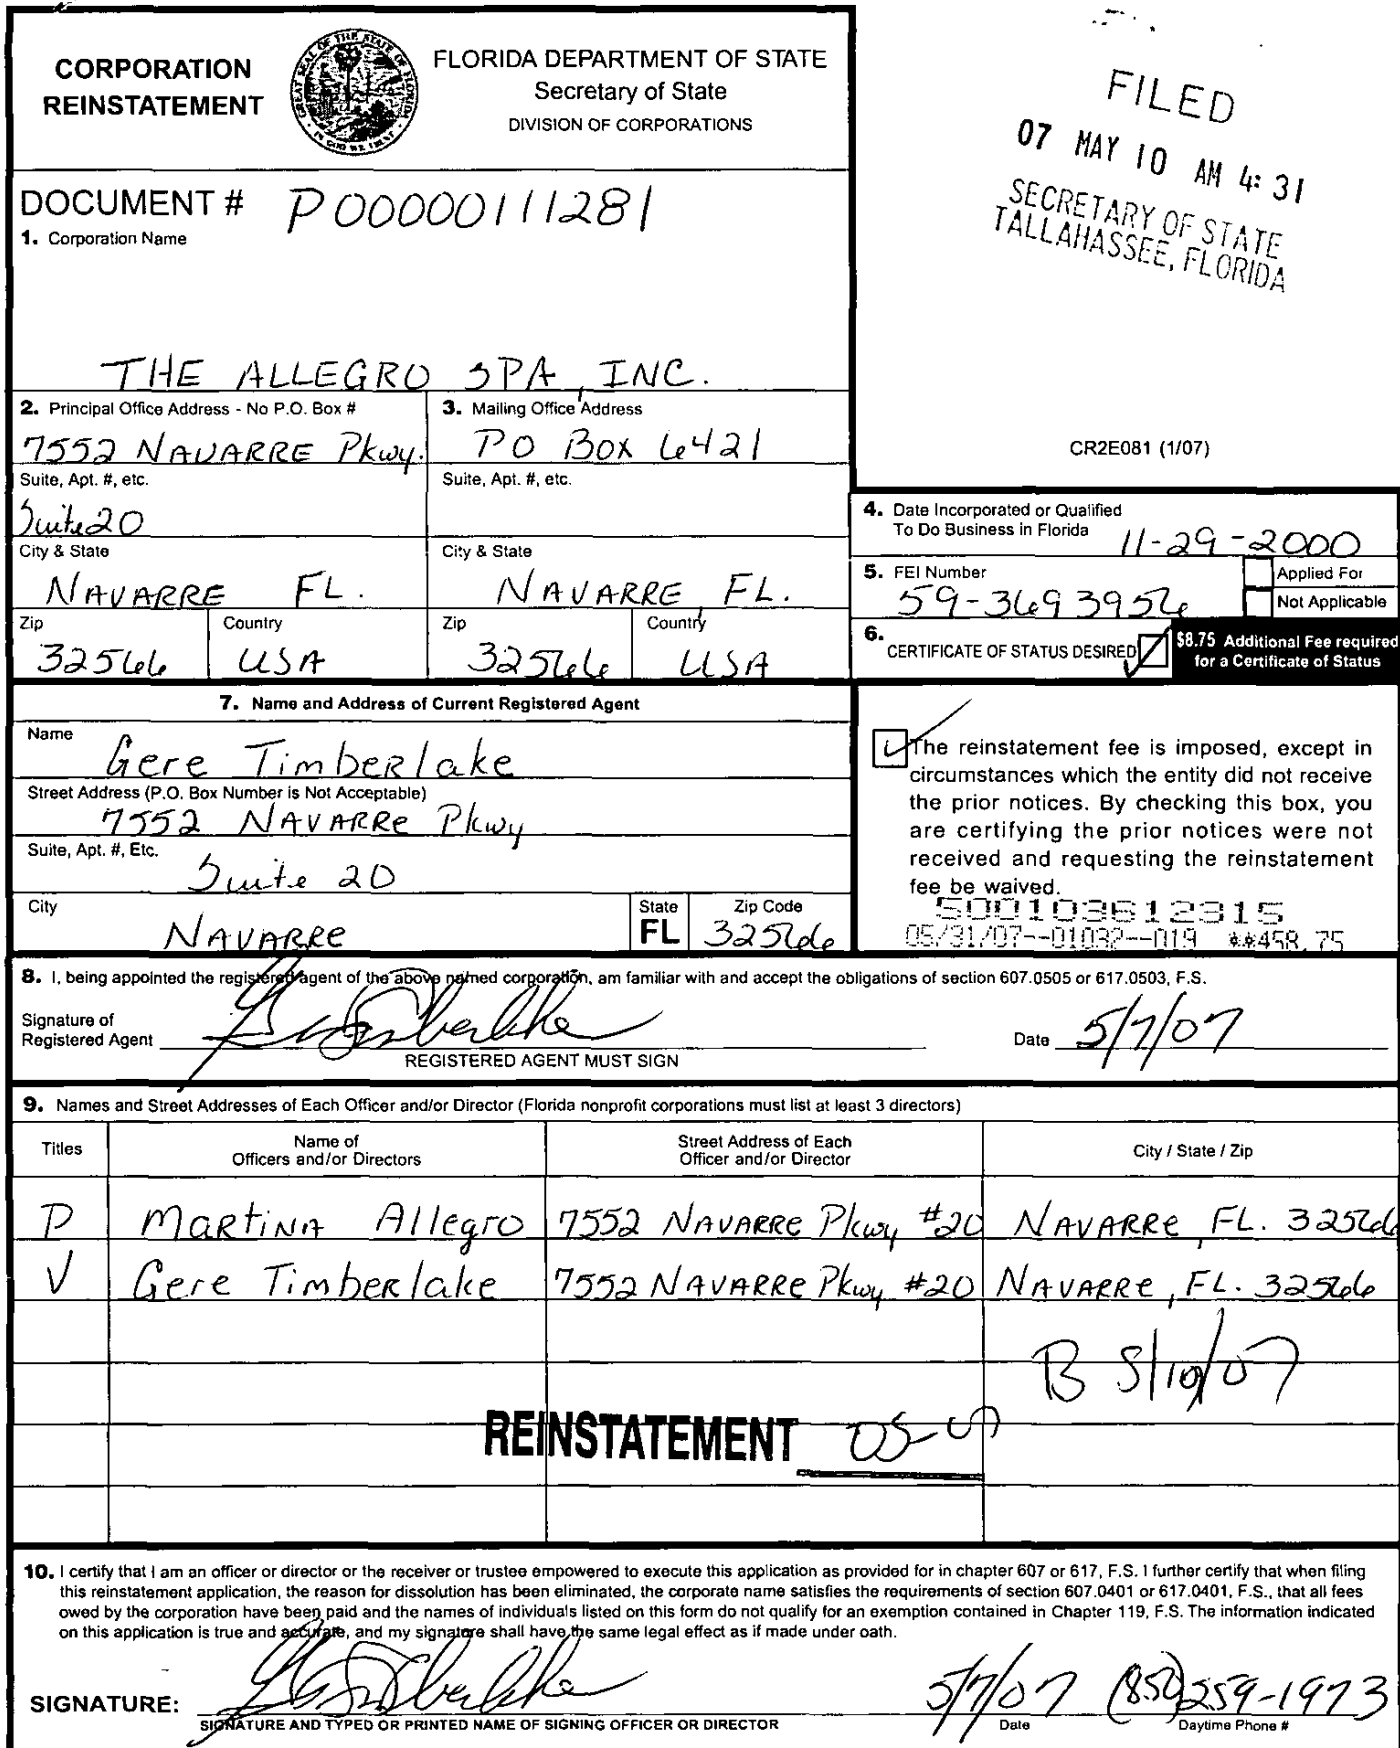 CORPORATION
REINSTATEMENT
GREAT SEAL OF THE STATE OF FLORIDA
IN GOD WE TRUST
FLORIDA DEPARTMENT OF STATE
Secretary of State
DIVISION OF CORPORATIONS
FILED
07 MAY 10 AM 4:31
SECRETARY OF STATE
TALLAHASSEE, FLORIDA
DOCUMENT # P00000111281
1. Corporation Name
THE ALLEGRO SPA, INC.
2. Principal Office Address - No P.O. Box #
7552 NAVARRE Pkwy.
3. Mailing Office Address
PO Box 6421
CR2E081 (1/07)
Suite, Apt. #, etc.
Suite 20
Suite, Apt. #, etc.
City & State
NAVARRE FL.
City & State
NAVARRE, FL.
Zip
32566
Country
USA
Zip
32566
Country
USA
4. Date Incorporated or Qualified
To Do Business in Florida 11-29-2000
5. FEI Number
59-3693956
Applied For
Not Applicable
6. CERTIFICATE OF STATUS DESIRED
$8.75 Additional Fee required
for a Certificate of Status
7. Name and Address of Current Registered Agent
Name
Gere Timberlake
Street Address (P.O. Box Number is Not Acceptable)
7552 NAVARRe Pkwy
Suite, Apt. #, Etc.
Suite 20
City
NAVARRe
State
FL
Zip Code
32566
The reinstatement fee is imposed, except in
circumstances which the entity did not receive
the prior notices. By checking this box, you
are certifying the prior notices were not
received and requesting the reinstatement
fee be waived.
500103612315
05/31/07--01032--019 **458.75
8. I, being appointed the registered agent of the above named corporation, am familiar with and accept the obligations of section 607.0505 or 617.0503, F.S.
Signature of
Registered Agent
REGISTERED AGENT MUST SIGN
Date 5/7/07
9. Names and Street Addresses of Each Officer and/or Director (Florida nonprofit corporations must list at least 3 directors)
Titles
Name of
Officers and/or Directors
Street Address of Each
Officer and/or Director
City / State / Zip
P MARTINA Allegro 7552 NAVARRe Pkwy #20 NAVARRe, FL. 32566
V Gere Timberlake 7552 NAVARRe Pkwy #20 NAVARRe, FL. 32566
B 5/10/07
REINSTATEMENT 05-07
10. I certify that I am an officer or director or the receiver or trustee empowered to execute this application as provided for in chapter 607 or 617, F.S. I further certify that when filing
this reinstatement application, the reason for dissolution has been eliminated, the corporate name satisfies the requirements of section 607.0401 or 617.0401, F.S., that all fees
owed by the corporation have been paid and the names of individuals listed on this form do not qualify for an exemption contained in Chapter 119, F.S. The information indicated
on this application is true and accurate, and my signature shall have the same legal effect as if made under oath.
SIGNATURE:
SIGNATURE AND TYPED OR PRINTED NAME OF SIGNING OFFICER OR DIRECTOR
5/7/07
Date
(850)259-1973
Daytime Phone #